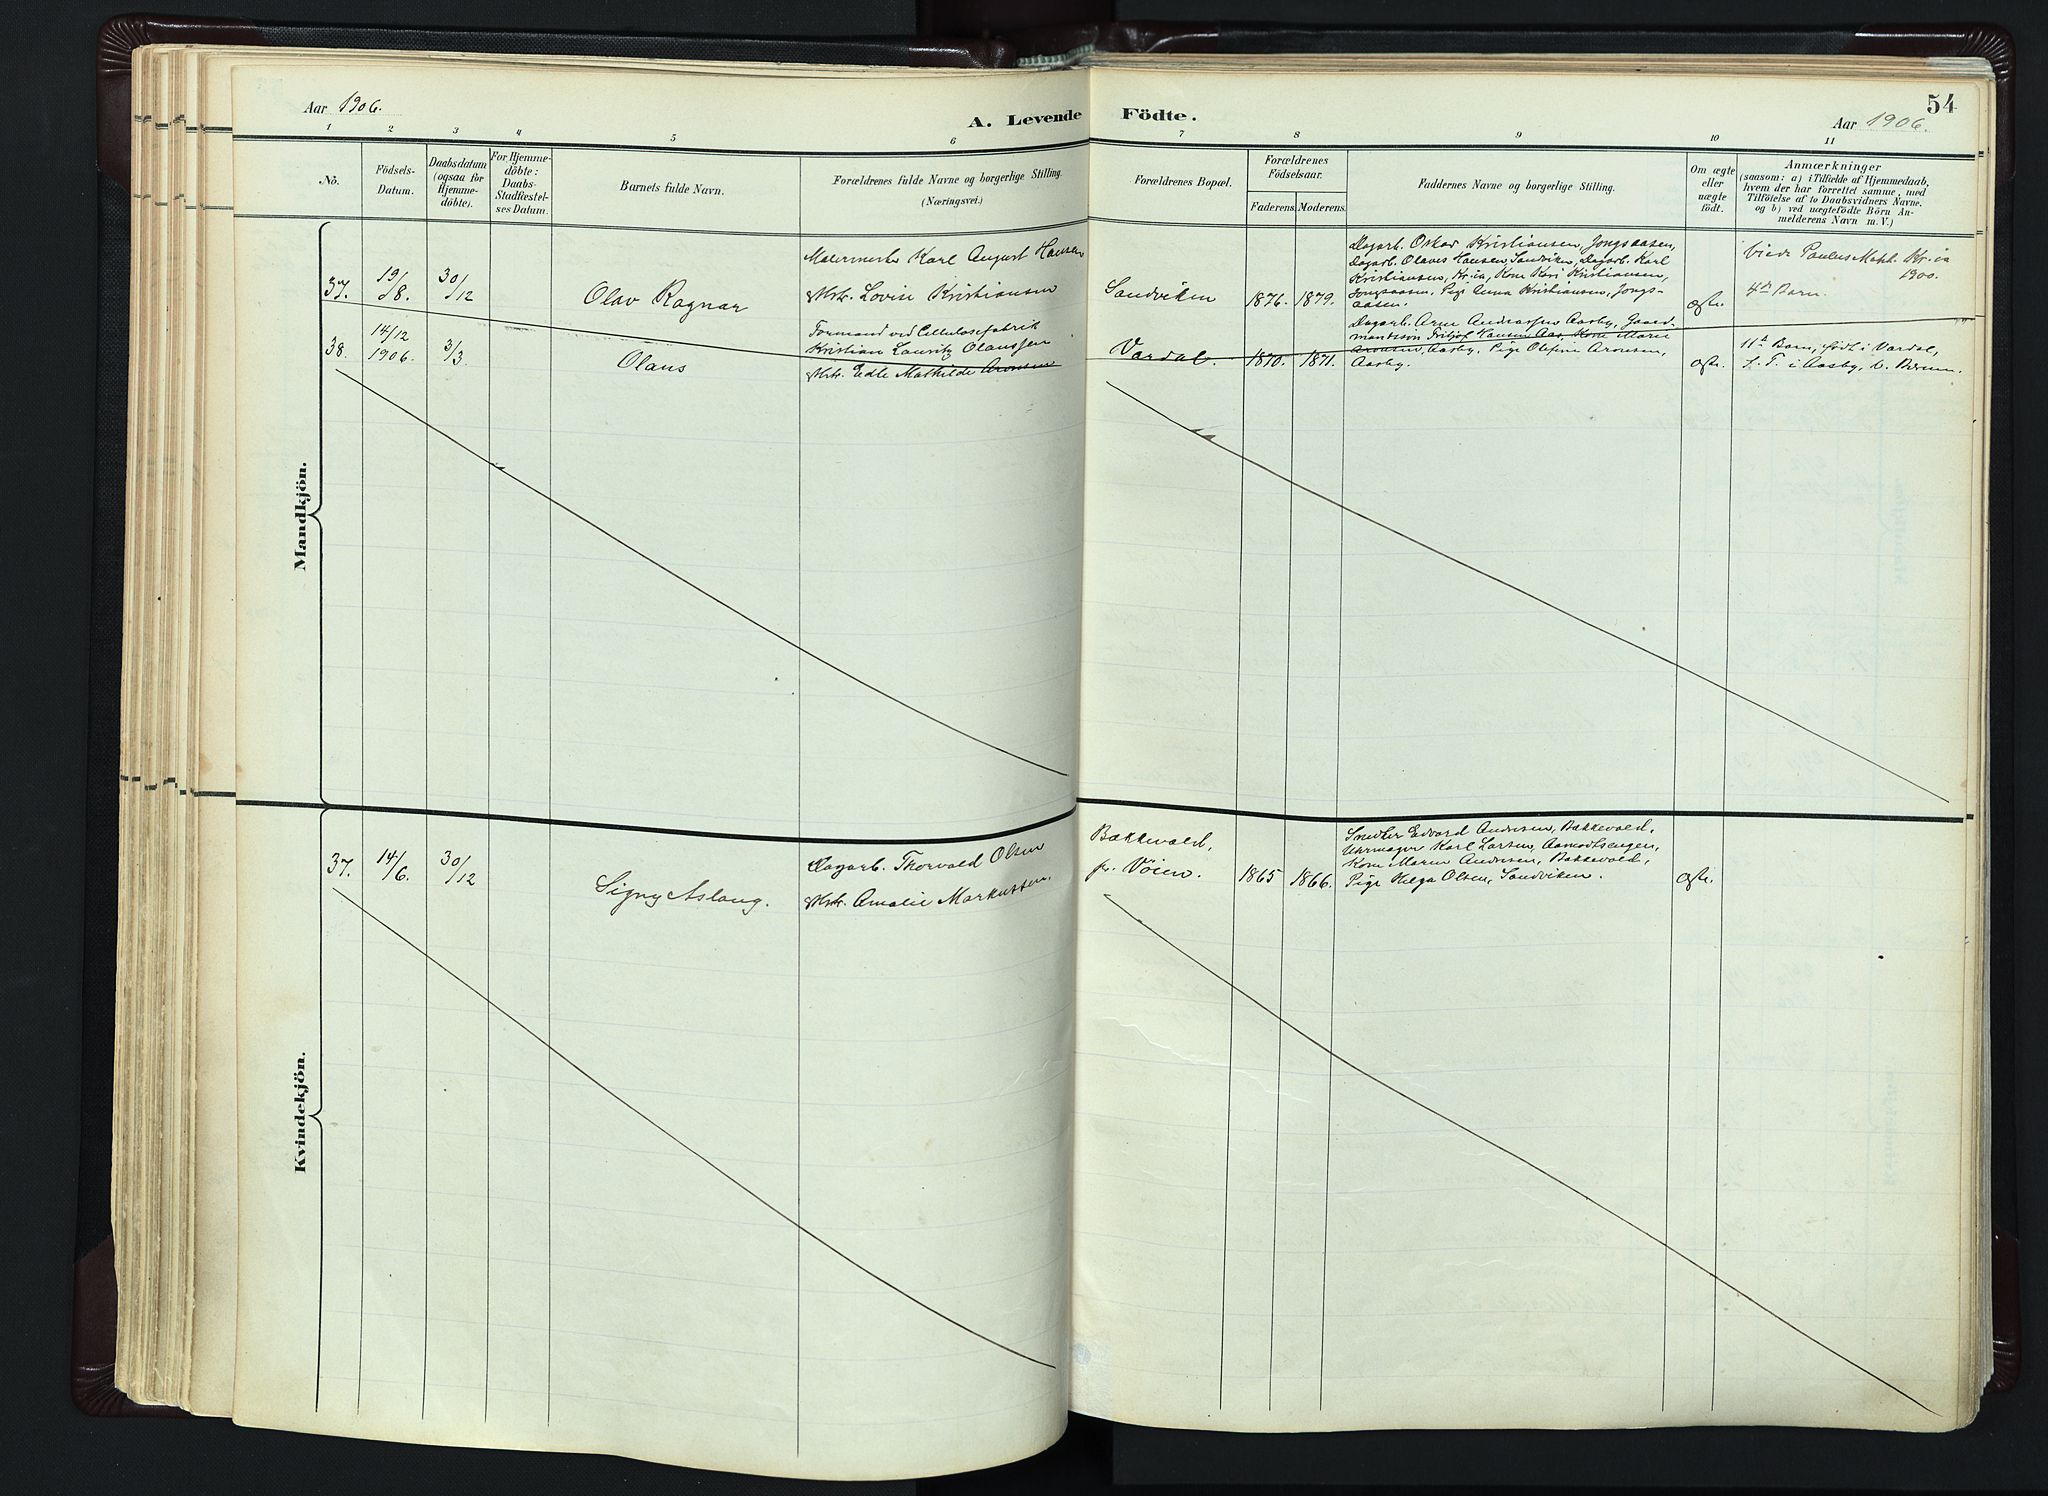 Aar 1906.
A. Levende Födte.
54
Aar 1906.
1 2 3 4 5 6 7 8 9 10 11
No.
Födsels-
Datum.
Daabsdatum
(ogsaa for
Hjemme-
döbte).
For Hjemme-
döbte:
Daabs-
Stadfæstel-
ses Datum.
Barnets fulde Navn.
Forældrenes fulde Navne og borgerlige Stilling.
(Næringsvei.)
Forældrenes Bopæl.
Forældrenes
Födselsaar.
Faderens. Moderens.
Faddernes Navne og borgerlige Stilling.
Om ægte
eller
uægte
födt.
Anmærkninger
(saasom: a) i Tilfælde af Hjemmedaab,
hvem der har forrettet samme, med
Tilföielse af to Daabsvidners Navne.
og b) ved uægtefödte Börn An-
melderens Navn m. V.)
Mandkjön.
37.
19/8.
30/12
Olav Ragnar
Malermester Karl August Hansen
Hstr. Lovise Kristiansen
Sandviken
1876. 1879.
Dagarb. Oskar Kristiansen, Jongsaasen,
Dagarb. Olaves Hansen, Sandviken, Dagarb. Karl
Kristiansen, Kr.ia, Kone Kari Kristiansen,
Jongsaasen, Pige Anna Kristiansen, Jongs-
aasen.
ægte.
Viede Paulus Mekh. Kr.ia
1900.
4de Barn.
38.
14/12
1906.
3/3.
Olaus
Formand ved Cellulosefabrik
Kristian Lauritz Olaussen
Hstr. Edle Mathilde Aronsen
Vardal.
1870. 1871.
Dagarb. Arne Andreassen Aasby, Gaard-
mandssøn Fritjof Hansen Aas, Kone Marie
Aronsen, Aasby, Pige Olefine Aronsen,
Aasby.
ægte.
11te Barn, født i Vardal,
f. T. i Aasby, v. Bærum.
Kvindekjön.
37.
14/6.
30/12
Signy Aslaug.
Dagarb. Thorvald Olsen
Hstr. Amalie Markussen.
Bækkevold,
pr. Vöien.
1865 1866.
Snedker Edvard Andersen, Bækkevold,
Uhrmager Karl Larsen, Aamodtsengen,
Kone Maren Andersen, Bækkevold,
Pige Helga Olsen, Sandviken.
ægte.